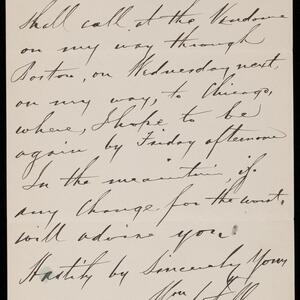 Shall call at the Vendome
on my way through
Boston, on Wednesday next,
on my way, to Chicago,
where, I hope to be
again by Friday afternoon
In the meantime, if
any change for the worst,
will advise you
Hastily by Sincerely Yours